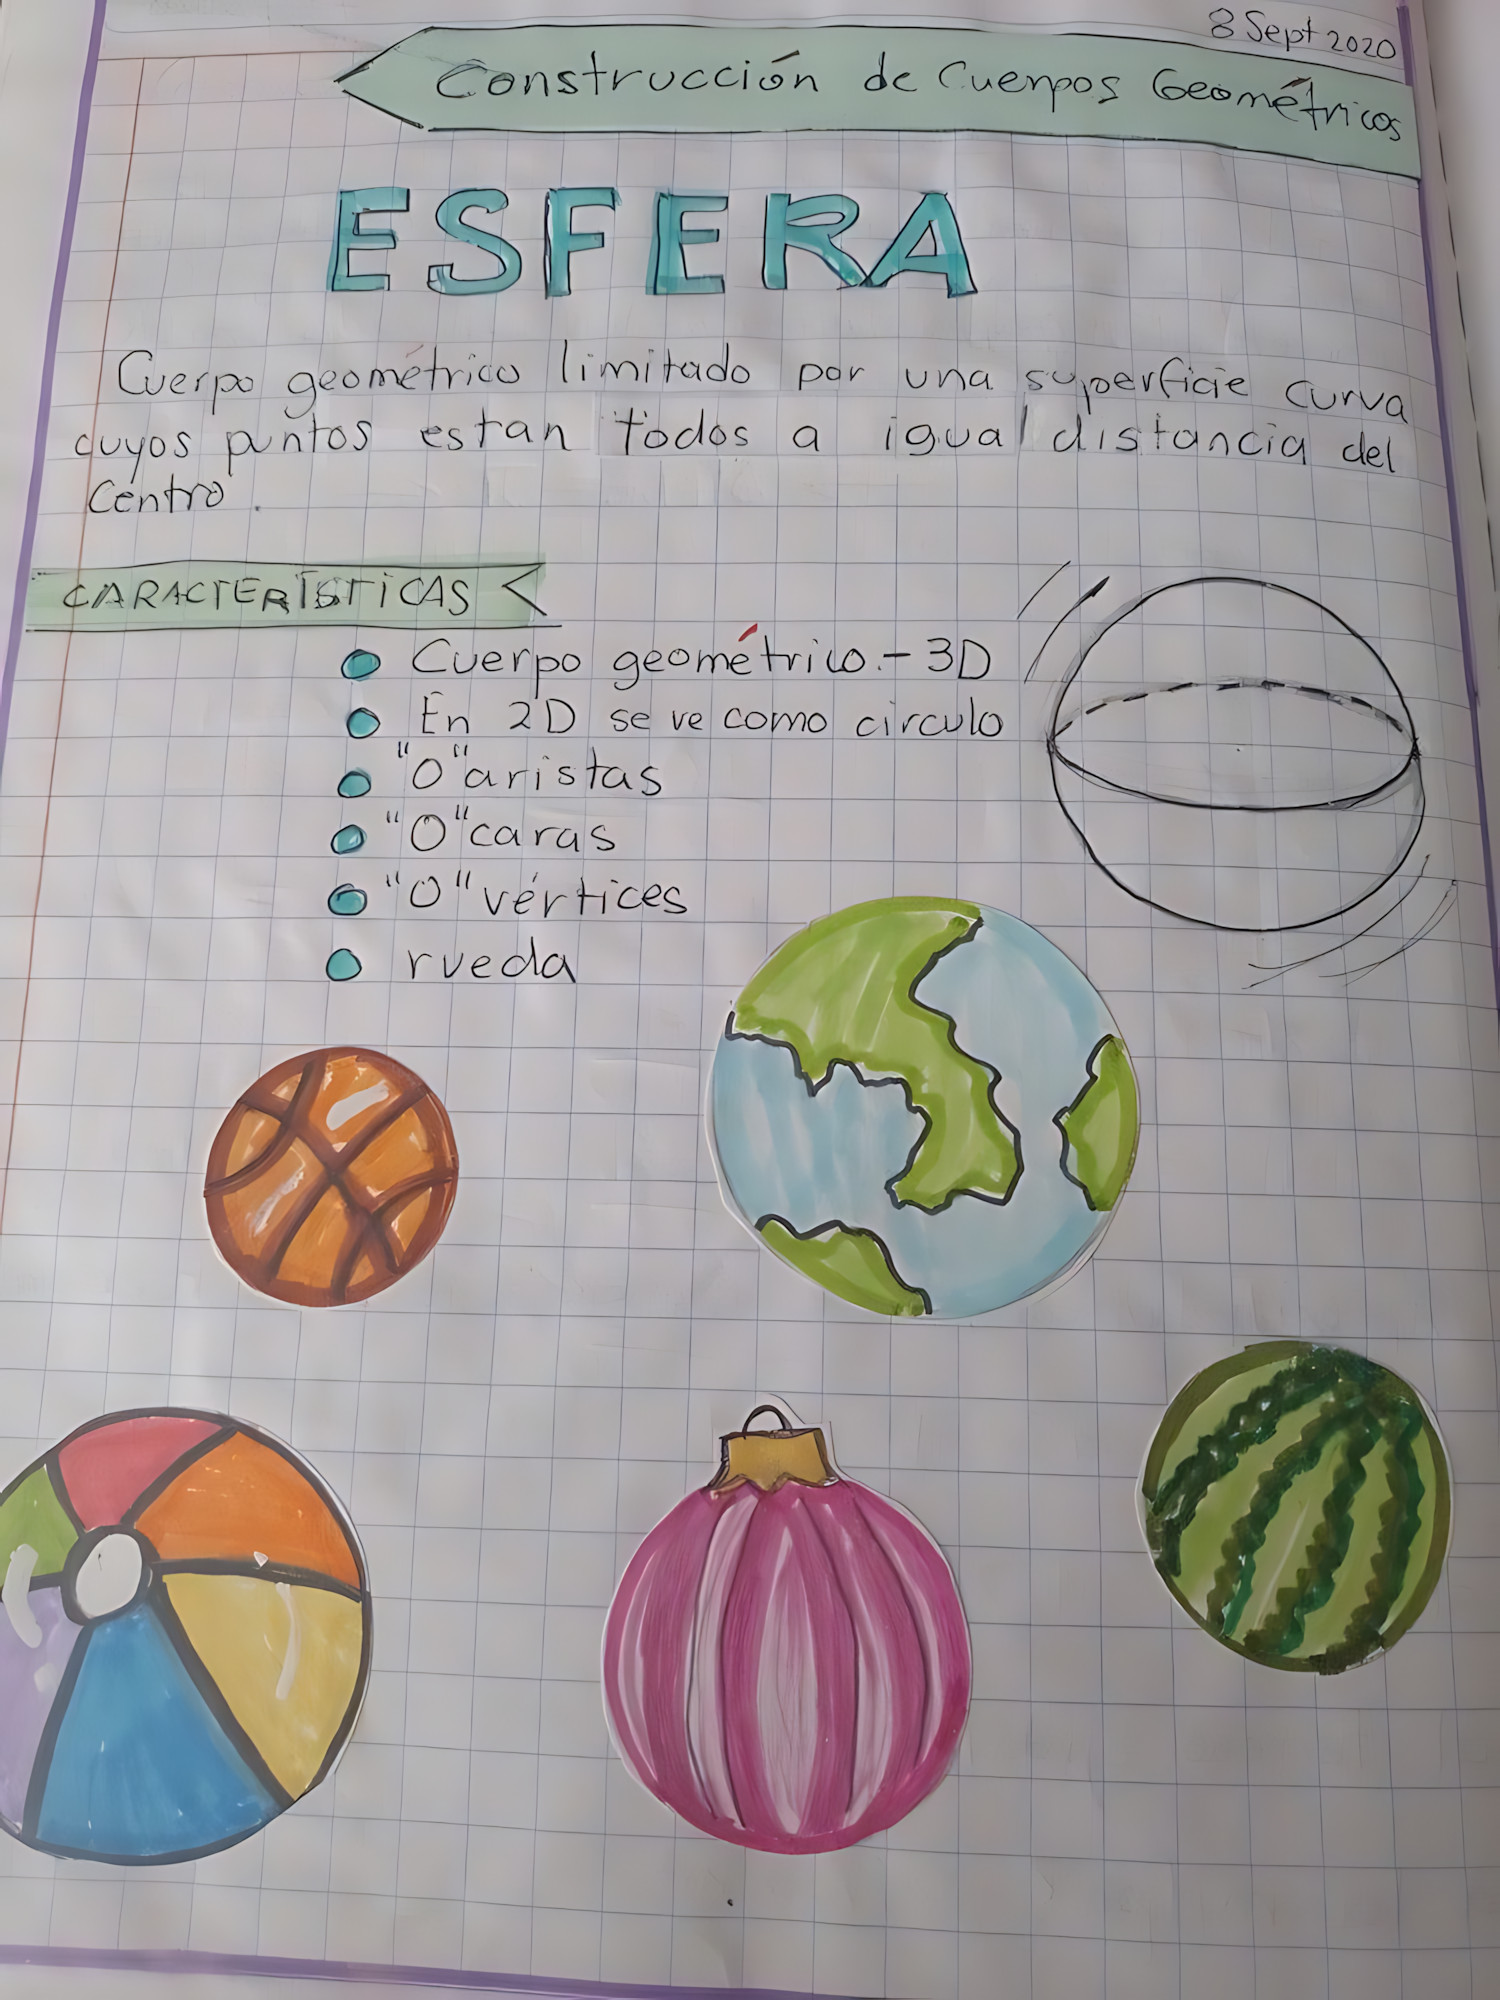 8 Sept 2020
Construcción de Cuerpos Geométricos
ESFERA
Cuerpo geométrico limitado por una superficie curva
cuyos puntos estan todos a igual distancia del
Centro.
CARACTERÍSTICAS
Cuerpo geométrico.- 3D
En 2D se ve como circulo
"0" aristas
"0" caras
"0" vértices
rueda